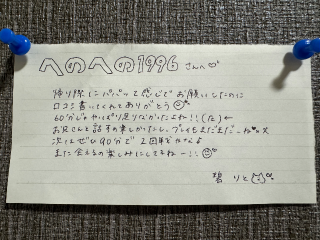 へのへの1996 さんへ♡
帰り際にパパッて感じでお願いしたのに
口コミ書いてくれてありがとう
60分じゃやっぱり足りなかったよね!!(だ)←
お兄さんと話すの楽しかったし、プレイもまだまだーね
次はぜひ90分で2回戦やろうよ
また会えるの楽しみにしてるねー!!
碧 りと